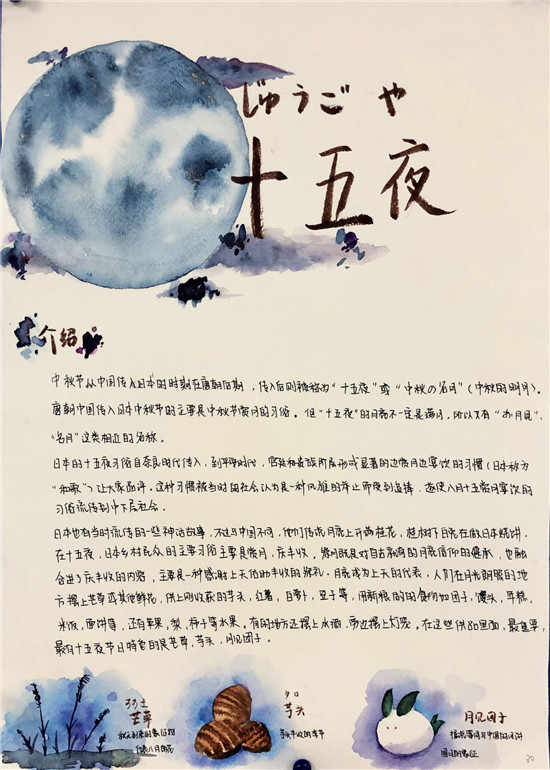 じゅうごや
十五夜
介绍
中秋节从中国传入日本的时期在唐朝后期，传入后则被称为“十五夜”或“中秋の名月”（中秋的明月）。
唐朝中国传入日本中秋节的主要是中秋节赏月的习俗。但“十五夜”的月亮不一定是满月，所以又有“お月见”、
“名月”这类相近的名称。
日本的十五夜习俗自奈良时代传入，到平安时代，宫廷和贵族间形成显著的边赏月边宴饮的习惯（日本称为
“和歌”）让大家品评。这种习惯被当时的社会认为是一种风雅的举止而受到追捧，遂使八月十五赏月宴饮的
习俗流传到中下层社会。
日本也有当时流传的一些神话故事，不过与中国不同，他们传说月亮上开满桂花，桂树下白兔在做日本烧饼。
在十五夜，日本乡村民众的主要习俗主要是赏月，庆丰收。赏月既是对自古就有的月亮信仰的继承，也融
合进了庆丰收的内容，主要是一种感谢上天佑助丰收的祭礼。月亮成为上天的代表，人们在月光照照的地
方摆上芒草或其他鲜花，供上刚收获的芋头、红薯、白萝卜、豆子等，用新粮做的食物如团子、馒头、年糕、
米饭、面饼等，还有苹果，梨，柿子等水果。有的地方还摆上水酒，旁边摆上灯笼。在这些供品里面，最重要，
最有十五夜节日特色的是芒草，芋头，月见团子。
芒草
秋天到来的象征物
代表八月的花
芋头
芋头丰收的季节
月见团子
圆月的象征
30